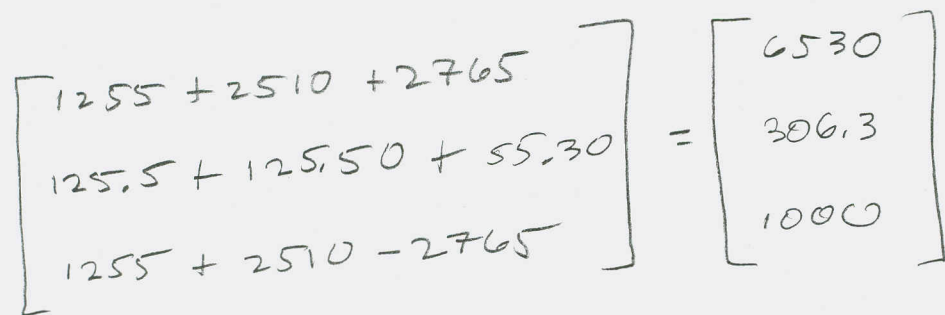 1255 + 2510 + 2765
125.5 + 125.50 + 55.30
1255 + 2510 - 2765
=
6530
306.3
1000